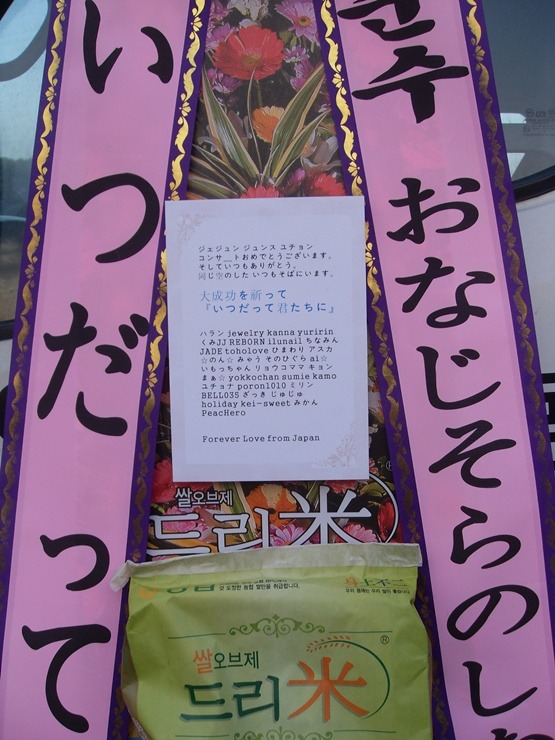 いつだって
준수 おなじそらのした
ジェジュン ジュンス ユチョン
コンサ__トおめでとうございます。
そしていつもありがとう。
同じ空のした いつもそばにいます。
大成功を祈って
『いつだって君たちに』
ハラン jewelry kanna yuririn
くみJJ REBORN ilunail ちなみん
JADE toholove ひまわり アスカ
☆のん☆ みゅう そのひぐら ai☆
いもっちゃん リョウコママ キョン
まぁ☆ yokkochan sumie kamo
ユチョナ poron1010 ミリン
BELL035 ざっき じゅじゅ
holiday kei-sweet みかん
PeacHero
Forever Love from Japan
쌀오브제
드리米
身土不二
우리 몸에는 우리 쌀이 좋습니다
쌀오브제
드리米®